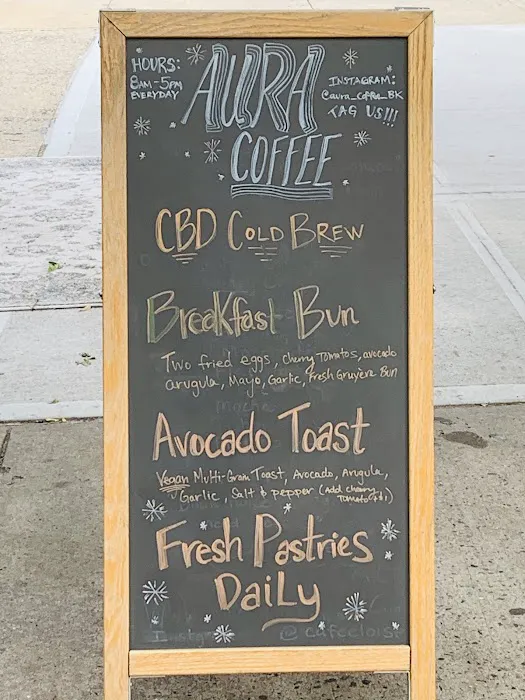 HOURS:
8AM-5PM
EVERYDAY
AURA
COFFEE
INSTAGRAM:
@aura_coffee_BK
TAG US!!!
CBD COLD BREW
Breakfast Bun
Two fried eggs, cherry Tomatoes, avocado
arugula, Mayo, Garlic, Fresh Gruyere Bun
Avocado Toast
Vegan Multi-Grain Toast, Avocado, Arugula,
Garlic, Salt & pepper (Add cherry
Tomato $1)
Fresh Pastries
DaiLy